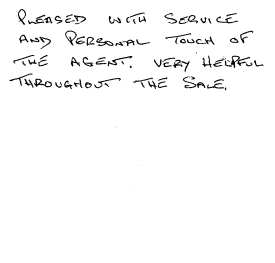 PLEASED WITH SERVICE
AND PERSONAL TOUCH OF
THE AGENT. VERY HELPFUL
THROUGHOUT THE SALE.